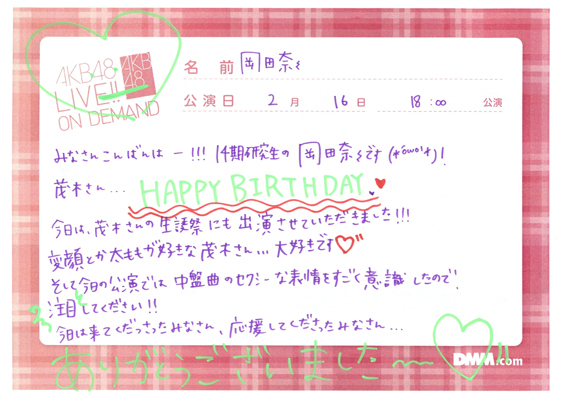 AKB48
LIVE!!
ON DEMAND
AKB
48
名前 岡田奈々
公演日 2月 16日 18:00 公演
みなさんこんばんはー!!! 14期研究生の岡田奈々です(*ÓωÒ*)!
茂木さん... HAPPY BIRTHDAY
今日は、茂木さんの生誕祭にも出演させていただきました!!!
変顔とか太ももが好きな茂木さん...大好きです♡"
そして今日の公演では中盤曲のセクシーな表情をすごく意識したので、
注目してください!!
今日は来てくださったみなさん、応援してくださったみなさん...
ありがとうございました〜 ♡!!
DMM.com